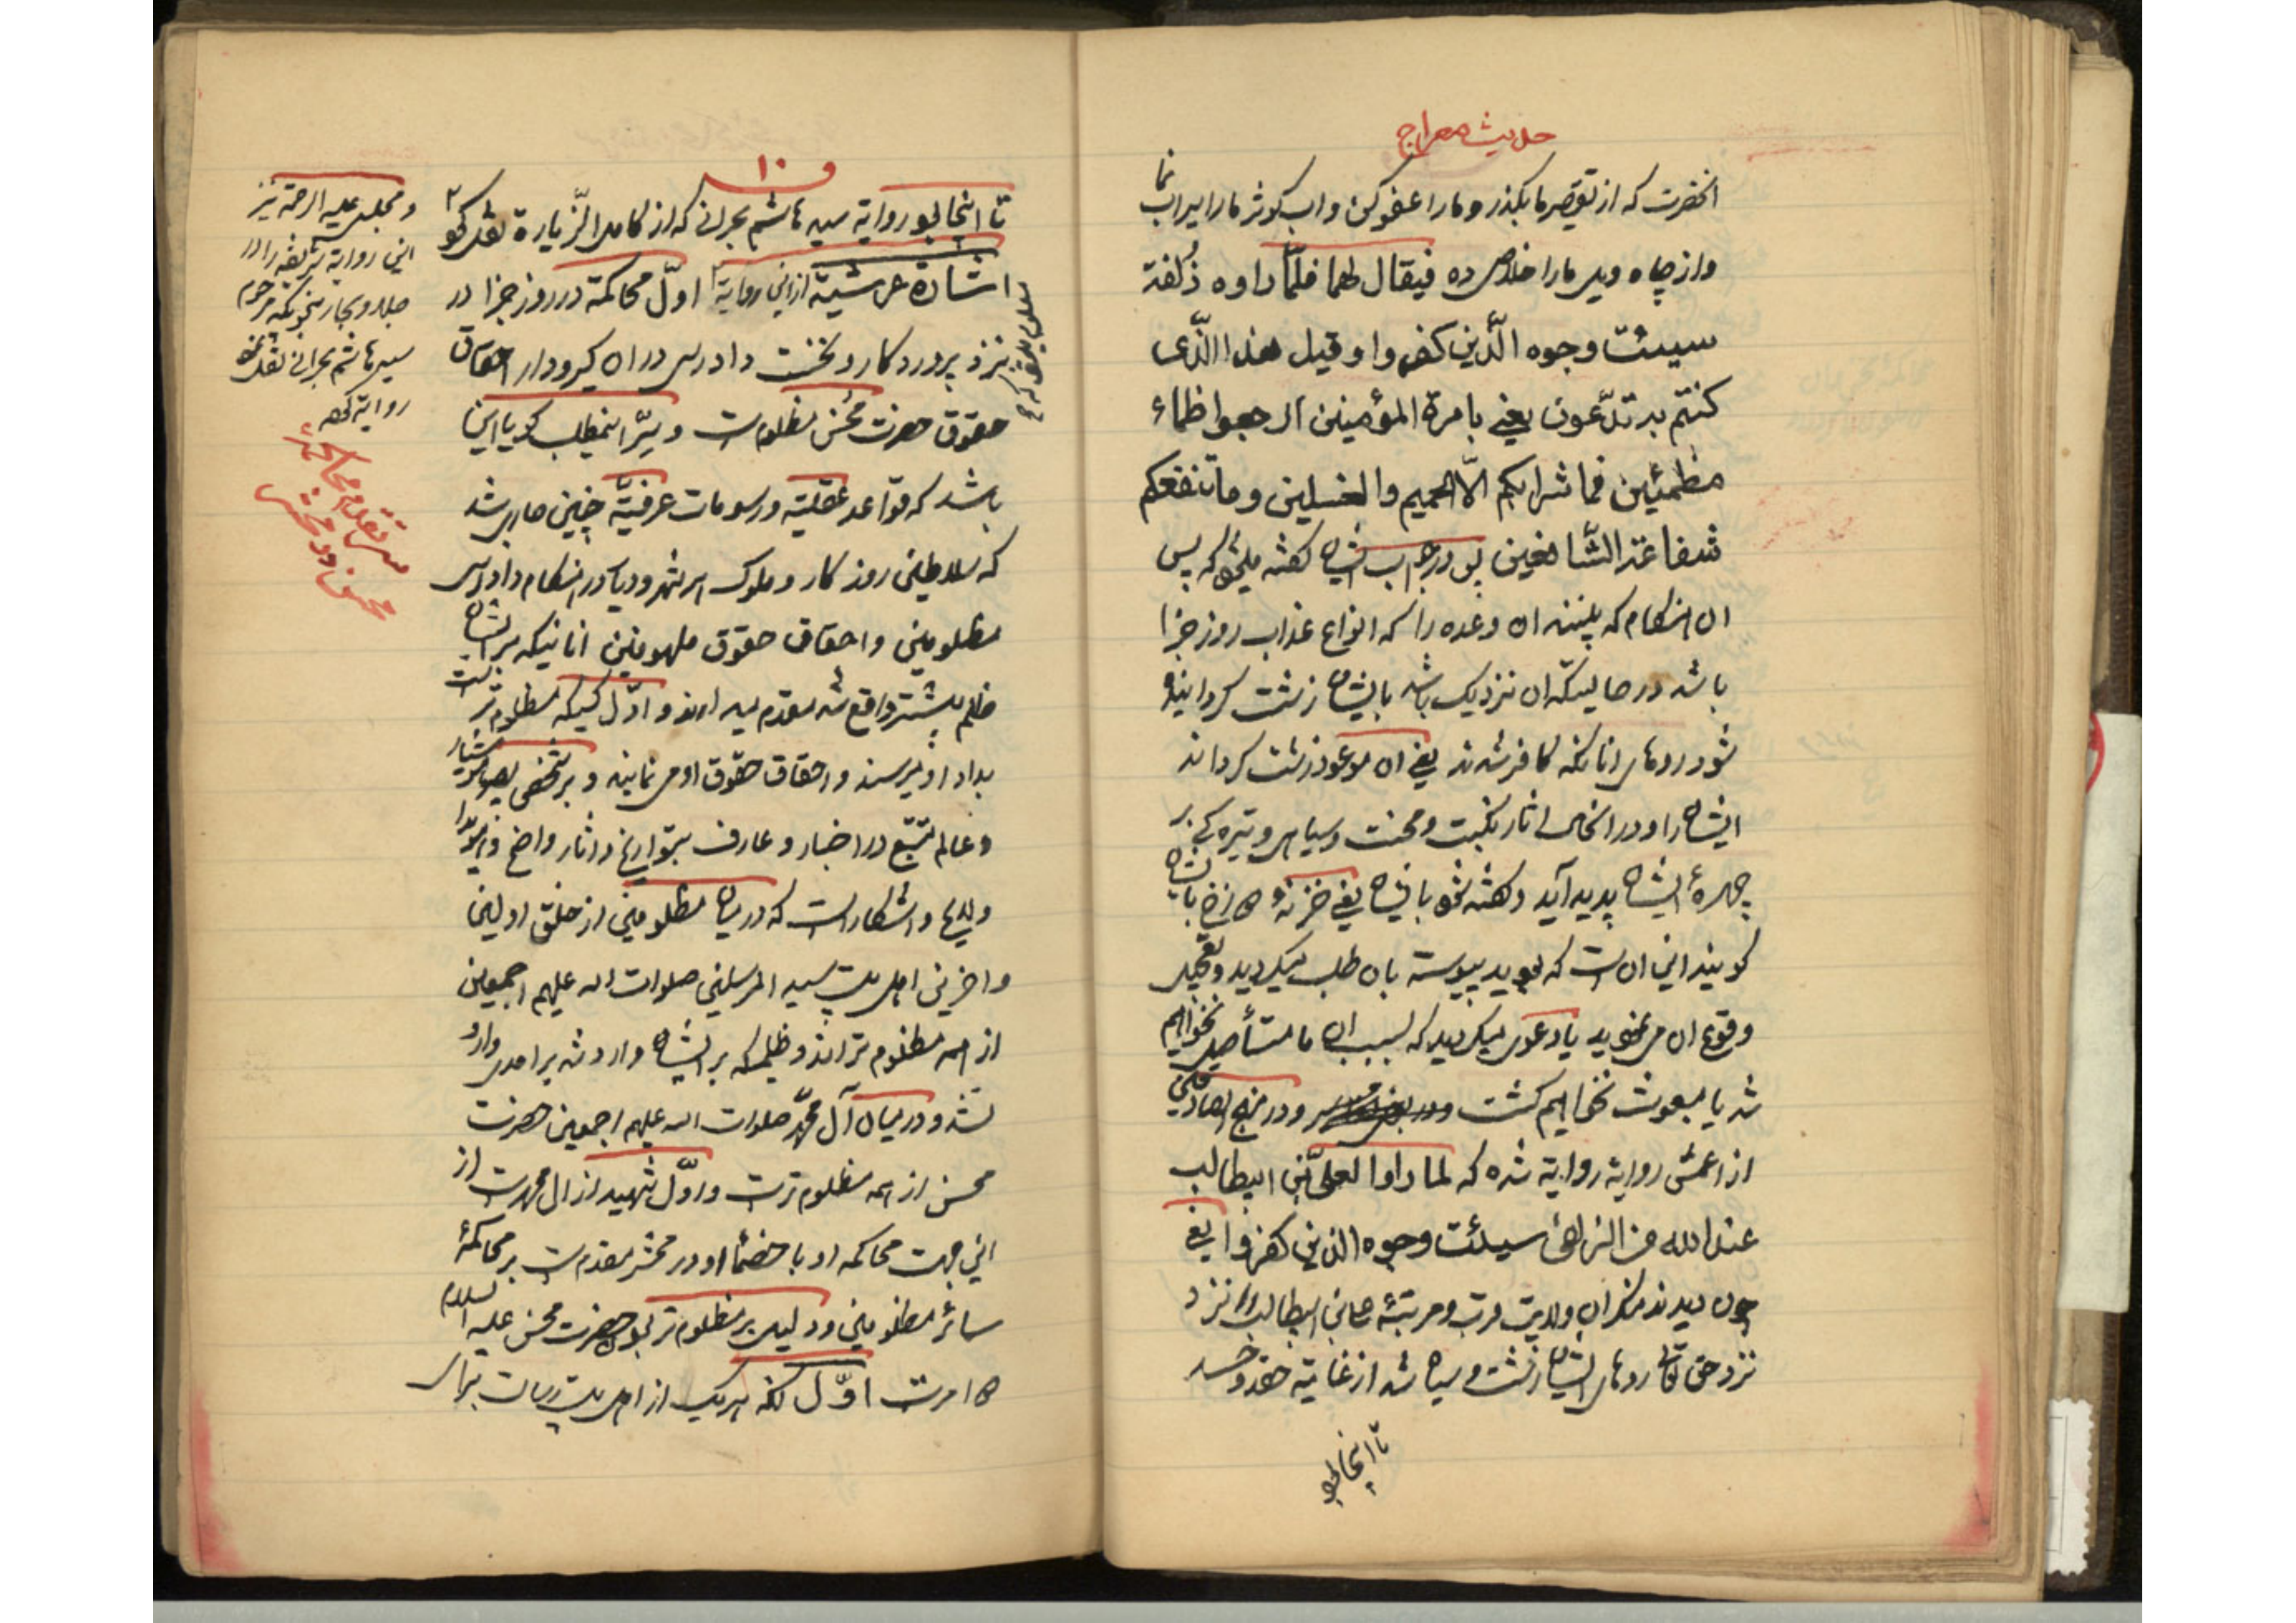 حدیث معراج
انحضرت که از تقصیر ما بگذر و ما را عفو کن و اب کوثر ما را سیراب نما
و از چاه ویل ما را خلاص ده فیقال لهما فلمّا راوه زُلفة
سیئت وجوه الّذین کفروا و قیل هذا الّذی
کنتم به تدّعون یعنی بامرة المؤمنین ارجعوا ظماء
مظمئین فما شرابکم الّا الحمیم والغسلین و ما تنفعکم
شفاعة الشّافعین پس در جواب ایشان گفته میشود که پس
ان هنکام که ببینند ان وعده را که انواع عذاب روز جزا
باشد در حالیکه ان نزدیک باشد بایشان زشت کردانیده
شود روهای انانکه کافر شدند یعنی ان موعود زشت کرداند
ایشان را و در انحال اثار نکبت و محنت و سیاهی و تیره کی بر
چهرهٔ ایشان پدید آید و کفته شود بایشان یعنی خزنهٔ دوزخ بایشان
کویند این ان است که بودید پیوسته بان طلب میکردید و تعجیل
وقوع ان می نمودید یا دعوی میکردید که بسبب ان ما مستأصل نخواهیم
شد یا مبعوث نخواهیم کشت و در منهج الصادقین
از اعمش روایة روایة شده که لما راوا لعلیّ بن ابیطالب
عند الله من الزلفی سیئت وجوه الذین کفروا یعنی
چون دیدند منکران ولایت قرب و مرتبهٔ علی بن ابیطالب را نزد
نزد حق تعالی روهای ایشان زشت و سیاه شد از غایة حقد و حسد
تا اینجا بود
و ١٠
تا اینجا بود روایة سید هاشم بحرانی که از کامل الزّیارة نقل کرده
اشارة عرشیّة از این روایة اوّل محاکمة در روز جزا در
نزد پروردکار و نخست دادرسی در ان کیرودار احقاق
حقوق حضرت محسن مظلوم است و سِرّ اینمطلب کویا این
باشد که قواعد عقلیّة و رسومات عرفیّة چنین جاری شد
که سلاطین روزکار و ملوک هر شهر و دیار در هنکام دادرسی
مظلومین و احقاق حقوق ملهوفین انانیکه بر ایشان
ظلم بیشتر واقع شده مقدم میدارند و اوّل کسیکه مظلوم تر است
بداد او میرسند و احقاق حقوق او می نمایند و بر شخص بصیر
و عالم متتبّع در اخبار و عارف بتواریخ و اثار واضح و هویدا
و لایح و اشکار است که در میان مظلومین از خلق اولین
و اخرین اهل بیت سید المرسلین صلوات الله علیهم اجمعین
از همه مظلوم ترانند و ظلمیکه بر ایشان وارد شد بر احدی وارد
نشد و در میان آل محمّد صلوات الله علیهم اجمعین حضرت
محسن از همه مظلوم تر است و اوّل شهید از ال محمد است از
این جهت محاکمه او با خصماء او در محشر مقدم است بر محاکمهٔ
سائر مظلومین و دلیل بر مظلوم تر بودن حضرت محسن علیه السلام
امر است اوّل انکه هریک از اهل بیت رسالت برای
و مجلسی علیه الرحمة نیز
این روایة شریفه را در
جلد و بحار بنحویکه مرحوم
سید هاشم بحرانی نقل نموده
روایة کرده